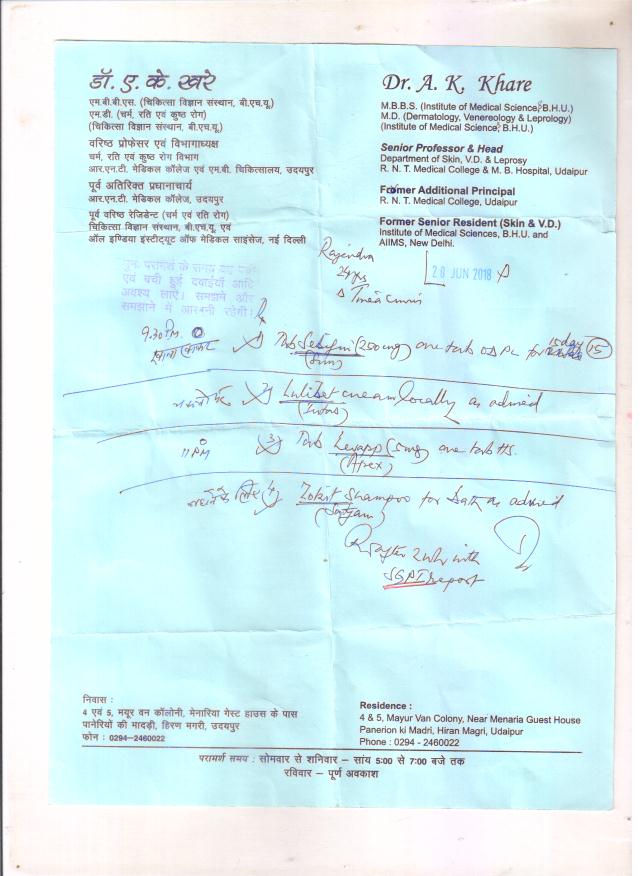 डॉ. ए. के. खरे
एम.बी.बी.एस. (चिकित्सा विज्ञान संस्थान, बी.एच.यू.)
एम.डी. (चर्म, रति एवं कुष्ठ रोग)
(चिकित्सा विज्ञान संस्थान, बी.एच.यू.)
वरिष्ठ प्रोफेसर एवं विभागाध्यक्ष
चर्म, रति एवं कुष्ठ रोग विभाग
आर.एन.टी. मेडिकल कॉलेज एवं एम.बी. चिकित्सालय, उदयपुर
पूर्व अतिरिक्त प्रधानाचार्य
आर.एन.टी. मेडिकल कॉलेज, उदयपुर
पूर्व वरिष्ठ रेजिडेन्ट (चर्म एवं रति रोग)
चिकित्सा विज्ञान संस्थान, बी.एच.यू. एवं
ऑल इण्डिया इंस्टीट्यूट ऑफ मेडिकल साइंसेज, नई दिल्ली
Dr. A. K. Khare
M.B.B.S. (Institute of Medical Science, B.H.U.)
M.D. (Dermatology, Venereology & Leprology)
(Institute of Medical Science, B.H.U.)
Senior Professor & Head
Department of Skin, V.D. & Leprosy
R. N. T. Medical College & M. B. Hospital, Udaipur
Former Additional Principal
R. N. T. Medical College, Udaipur
Former Senior Resident (Skin & V.D.)
Institute of Medical Sciences, B.H.U. and
AIIMS, New Delhi.
एवं बची हुई दवाईयाँ आदि
अवश्य लाएं। समझने और
समझाने में आसानी रहेगी।
Rajendra
24yrs
28 JUN 2018
Tinea Cruris
9.30PM
1) Tab (200mg) one tab OD for 15 day 15
(Sun)
2) Lulibet cream locally as advised
11 PM
3) Tab (5mg) one tab HS.
(Apex)
4) shampoo for bath as advised
R after 2wk with
SGPT report
निवास :
4 एवं 5, मयूर वन कॉलोनी, मेनारिया गेस्ट हाउस के पास
पानेरियों की मादड़ी, हिरण मगरी, उदयपुर
फोन : 0294-2460022
Residence :
4 & 5, Mayur Van Colony, Near Menaria Guest House
Panerion ki Madri, Hiran Magri, Udaipur
Phone : 0294 - 2460022
परामर्श समय : सोमवार से शनिवार – सांय 5:00 से 7:00 बजे तक
रविवार – पूर्ण अवकाश